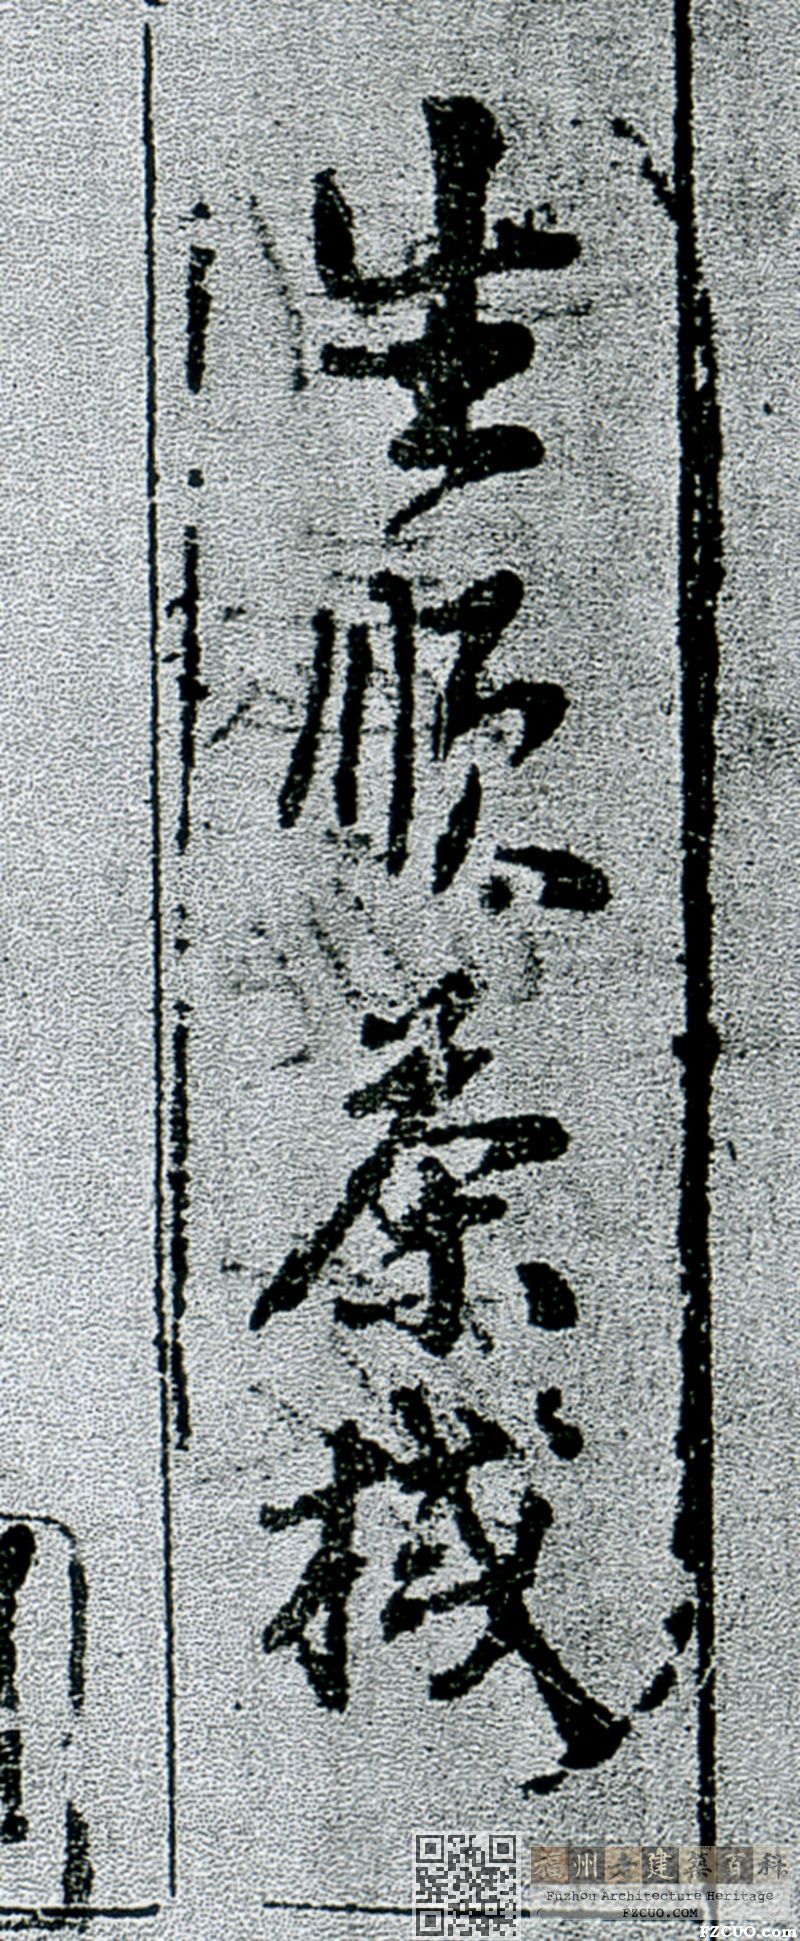 生順茶棧
福州老建築百科
Fuzhou Architecture Heritage
FZCUO.com
FZCUO.com